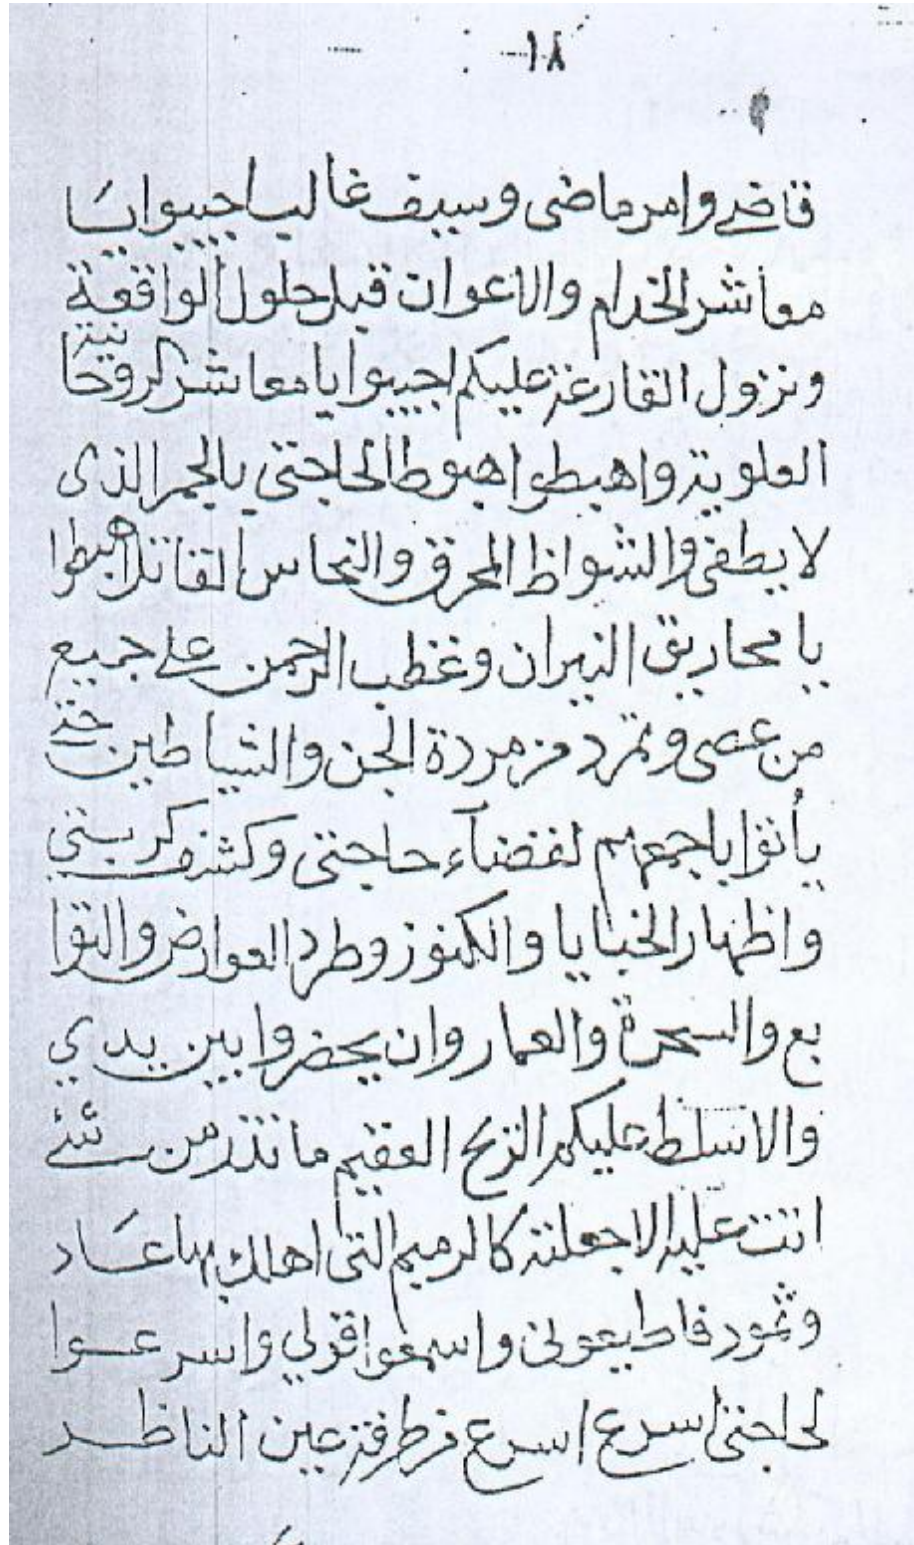 -١٨-
قاضي وامر ماضى وسيف غالب اجيبوا يا
معاشر الخدام والاعوان قبل حلول الواقعة
ونزول القارعة عليكم اجيبوا يا معاشر الروحانية
العلوية واهبطوا هبوطا لحاجتي بالجمر الذى
لا يطفى والشواظ المحرق والنحاس القاتل اهبطوا
يا محاريق النيران وغظب الرحمن على جميع
من عصى وتمرد من مردة الجن والشياطين حتى
يأتوا باجمعهم لقضاء حاجتى وكشف كربتي
واظهار الخبايا والكنوز وطرد العوارض والتوا
بع والسحرة والعمار وان يحضروا بين يدي
والا نسلط عليكم الريح العقيم ما تذر من شئ
اتت عليه الا جعلته كالرميم التى اهلك بها عاد
وثمود فاطيعونى واسمعوا قولي واسرعوا
لحاجتى اسرع اسرع من طرفة عين الناظر